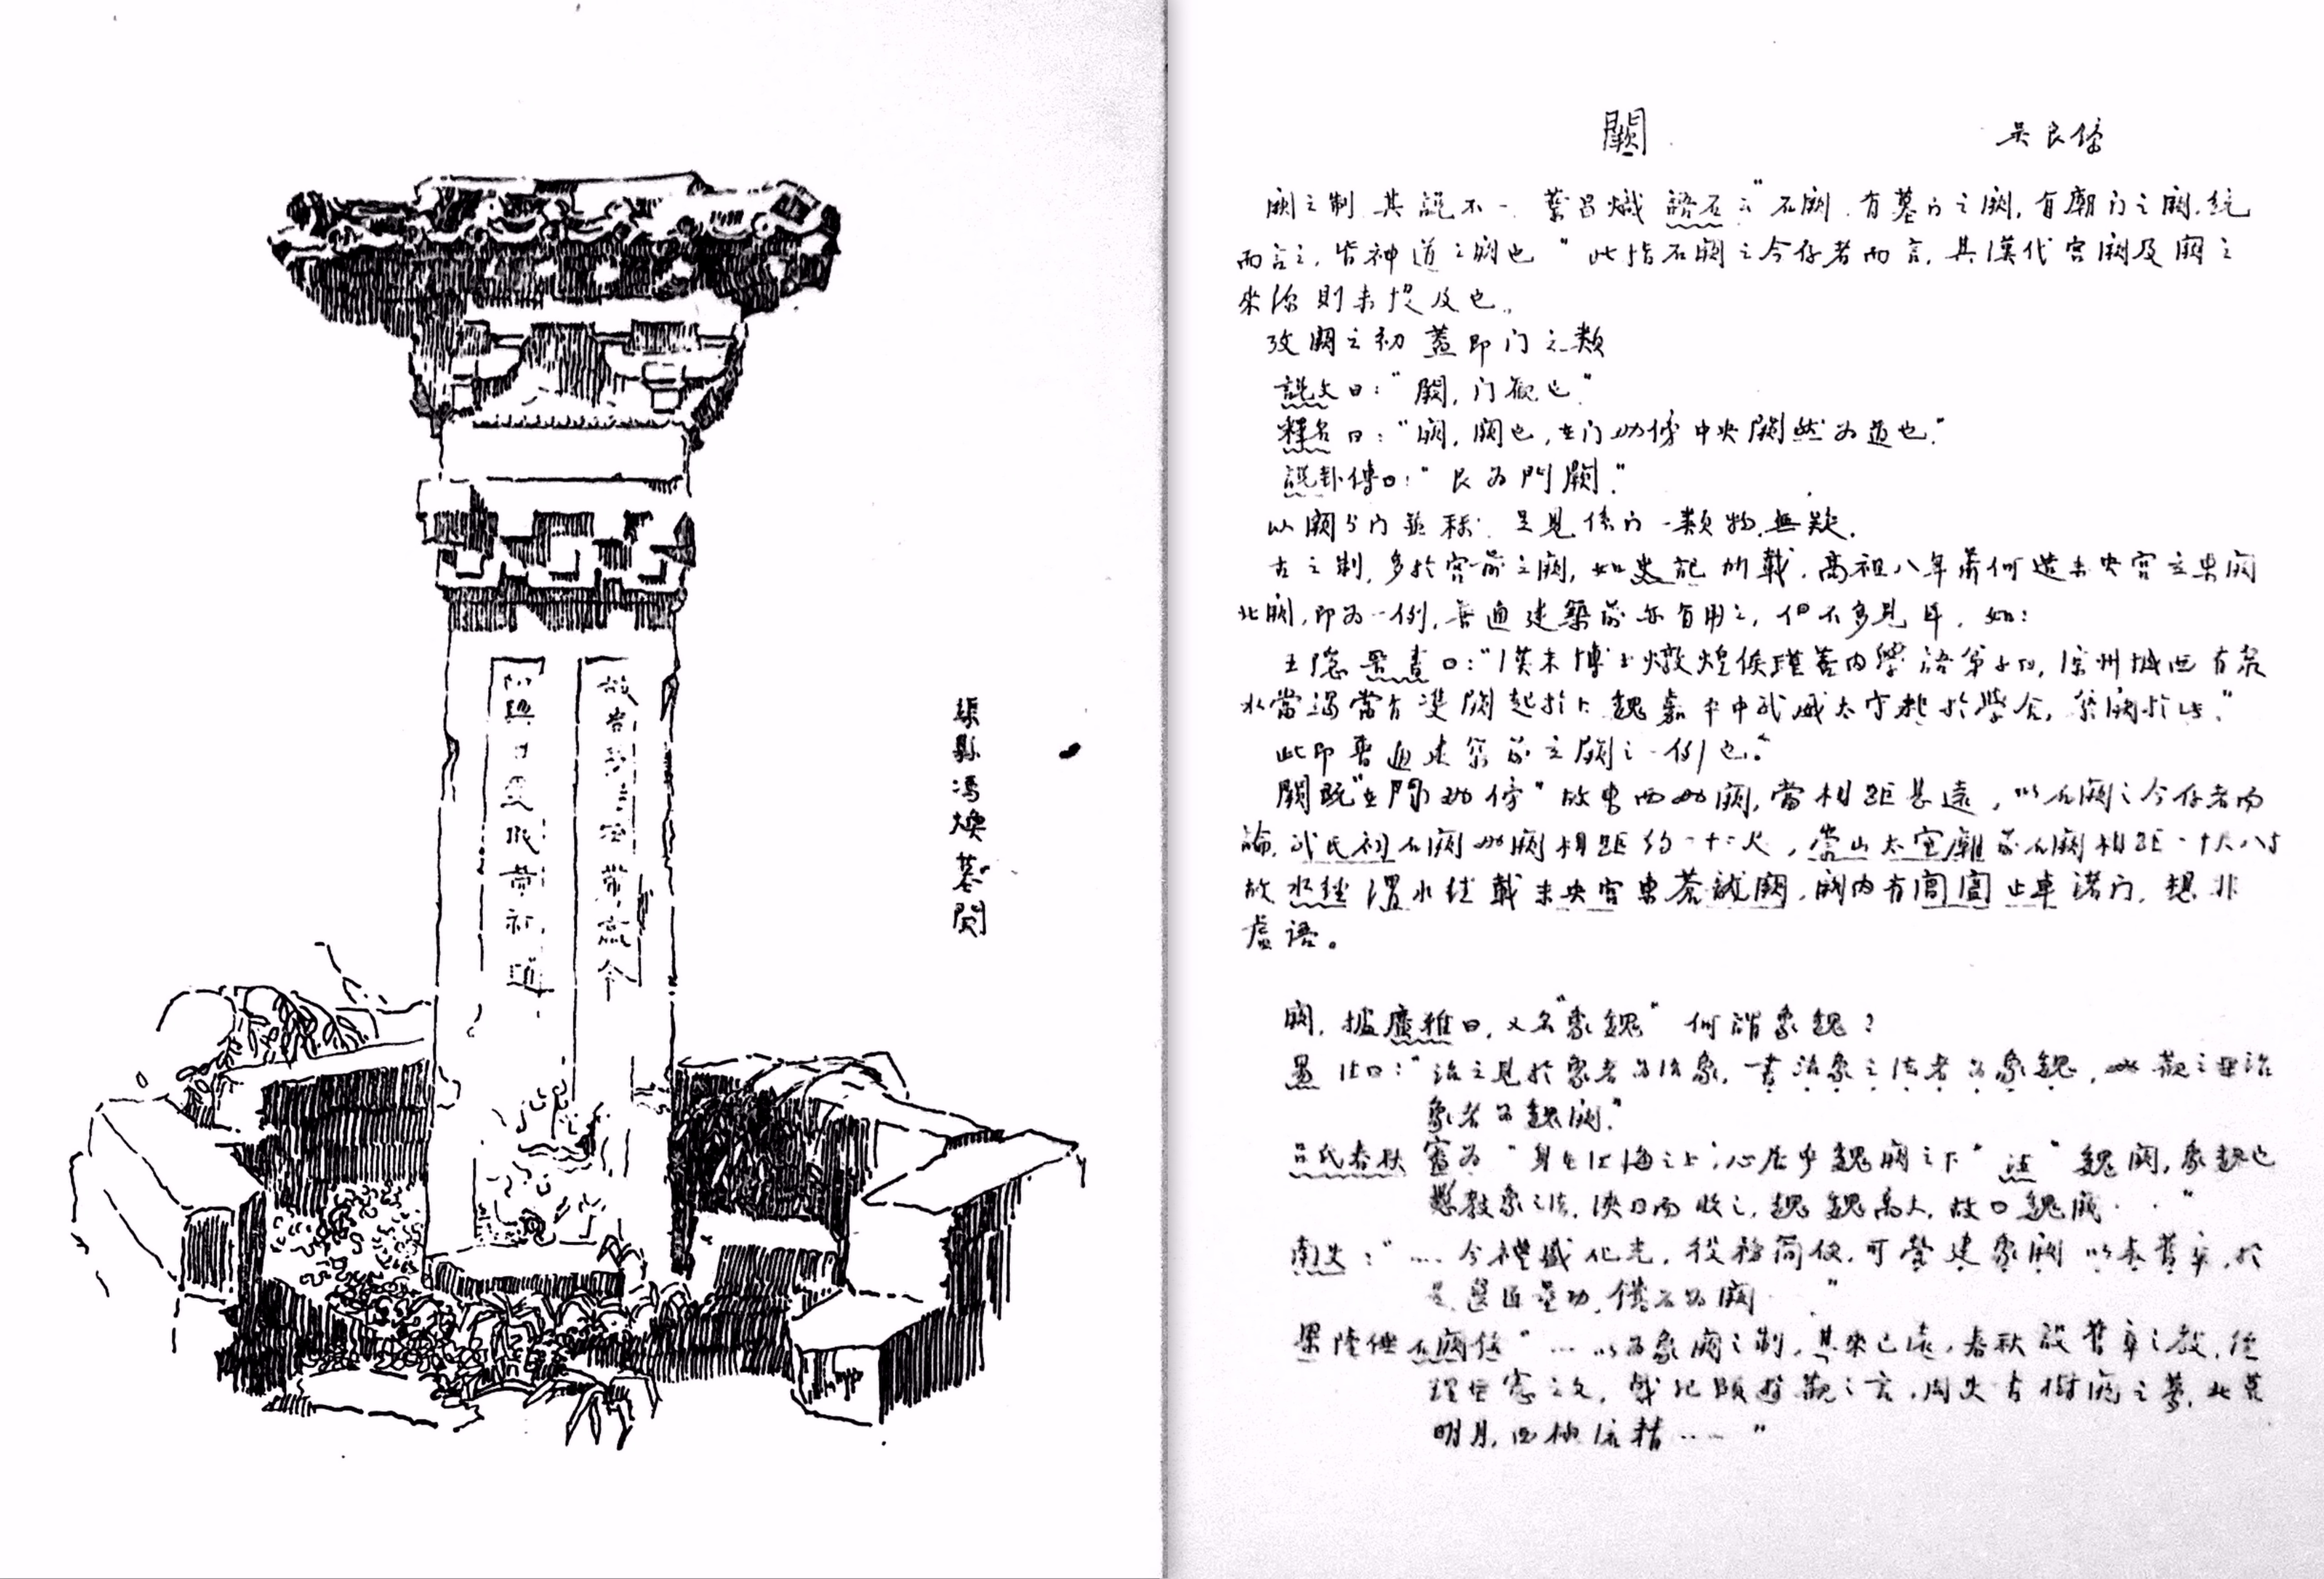 故尚書侍郎河南京令
豫州幽州刺史馮使君神道
渠縣馮煥墓闕
闕
吳良鏞
闕之制 其説不一. 葉昌熾 語石云"石闕. 有墓门之闕, 有廟门之闕. 統
而言之, 皆神道之闕也" 此指石闕之今存者而言. 其漢代宮闕及闕之
來源則未提及也.
攷闕之初 蓋即门之類
説文曰:"闕, 门觀也."
釋名曰:"闕, 闕也, 在门两傍中央闕然为道也."
説卦傳曰:"艮为門闕."
以闕与门並稱. 足見係门一類物, 無疑.
古之制, 多於宮前之闕, 如史記所載. 高祖八年蕭何造未央宮立東闕
北闕, 即为一例, 普通建築前亦有用之, 但不多見耳. 如:
王隐晋書曰:"漢末博士燉煌侯瑾善内學語弟子曰, 涼州城西有泉
水當竭當有雙闕起於上 魏嘉平中武威太守 於學舍, 築闕於此."
此即普通建築前之闕之一例也.
闕既"在門两傍"故東西两闕, 當相距甚遠, 以石闕之今存者而
論, 武氏祠石闕两闕相距约一十二尺, 嵩山太室廟前石闕相距一十尺八寸
故水經渭水注載未央宮東蒼龍闕, 闕内有閶闔止車諸门, 想非
虛語。
闕, 據廣雅曰, 又名"象魏" 何謂象魏?
曰:"治之見於象者为治象, 書治象之法者为象魏, 觀之 治
象者为魏闕."
吕氏春秋審为"身在江海之上, 心居乎魏闕之下" 注"魏闕, 象魏也
懸教象之法, 浹日而收之, 魏魏高大, 故曰魏闕··"
南史:"… 今禮盛化光, 役務简便, 可營建象闕 以表舊章, 於
是選匠量功, 鐫石为闕··"
梁陸倕石闕銘"… 以为象闕之制, 其來已遠, 春秋設舊章之教, 經
禮垂憲文, 戴記顯遊觀之言, 周史書樹闕之夢, 北荒
明月, 西極流精……"